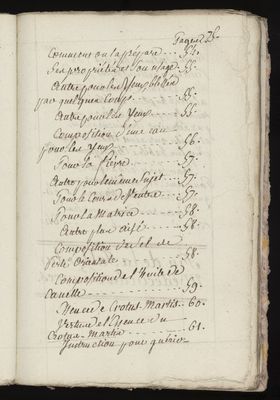 Pages 25.
Comment on la prepare ... 54.
Ses proprietés et son usage .. 55.
Autre pour les Yeux blessés
par quelques Coups ... 55.
Autre pour les Yeux ... 55.
Composition d'une eau
pour les Yeux ... 56.
Pour la fievre ... 57.
Autre pour le même Sujet ... 57.
Pour le Cours de Ventre ... 57.
Pour la Matrice ... 58.
Autre plus aisé ... 58.
Composition du Sel de
... 58.
Composition de l'huile de
Canelle ... 59.
Essence de Crotus Martis .. 60.
Vertus de l'Essence du
Crotus Martis ... 61.
Instruction pour guerir